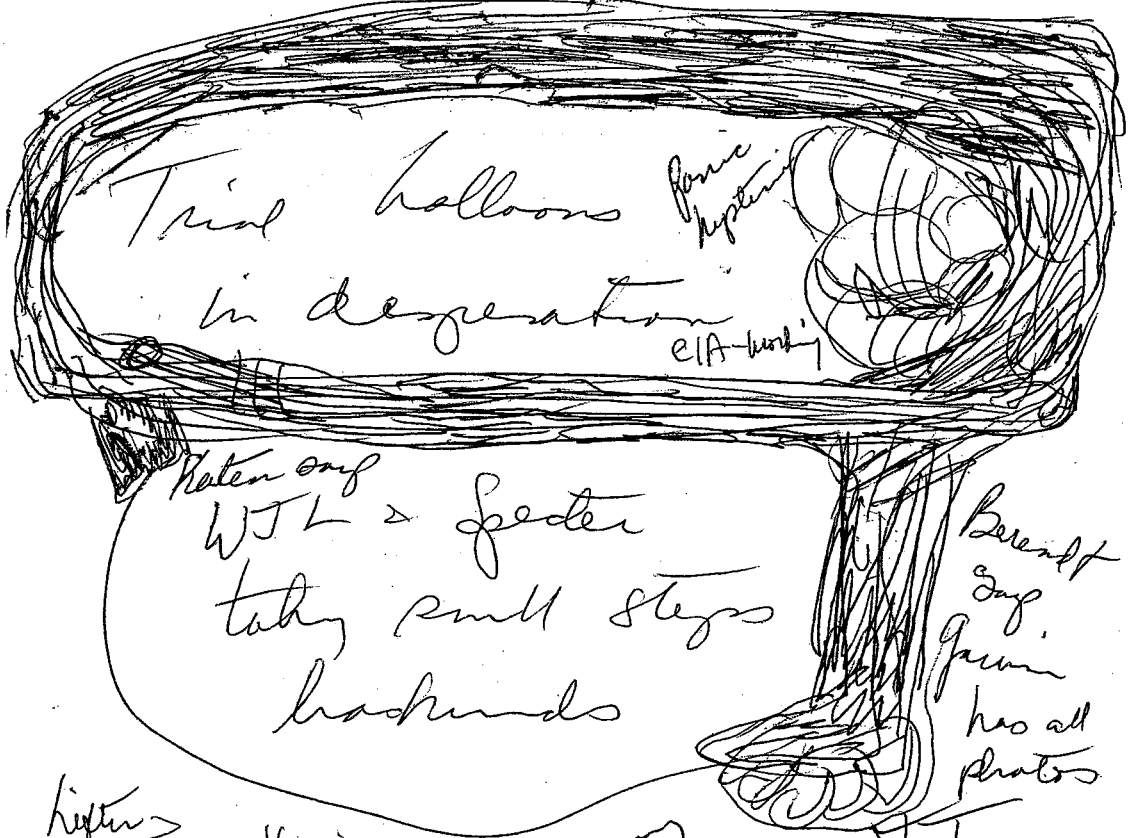 Trial balloons
panic
hysteria
in desperation
CIA-working
Katen says
WJL & Specter
taking small steps
backwards
Berendt
says
Garvin
has all
photos
Lifton